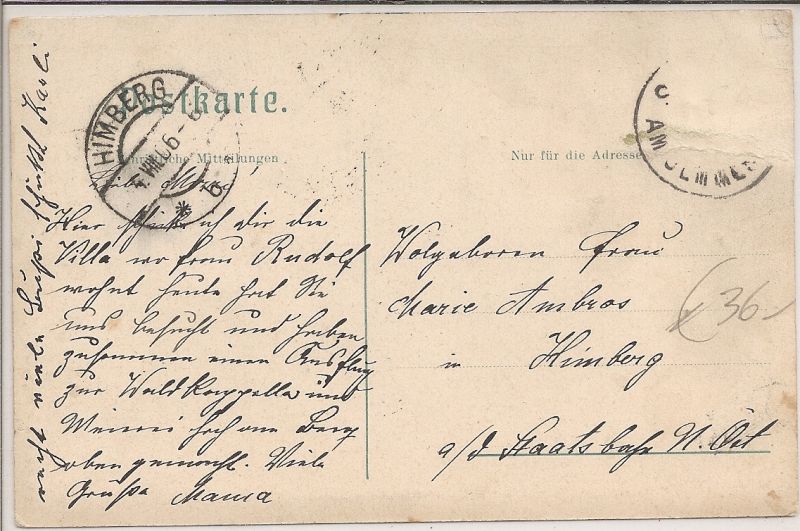 Postkarte.
HIMBERG
6
Mitteilungen
Nur für die Adresse
AM SEMMER
Hier schicke ich dir die
Villa wo frau Rudolf
wohnt heute hat Sie
uns besucht und haben
zusammen einen Ausflug
zur Waldkappelle und
Meierei hoch am Berg
oben gemacht. Viele
Grüße Mama
recht viele Bussi schickt Karli
Wolgeboren Frau
Marie Ambros
in Himberg
a/d Staatsbahn N. Öst
36-